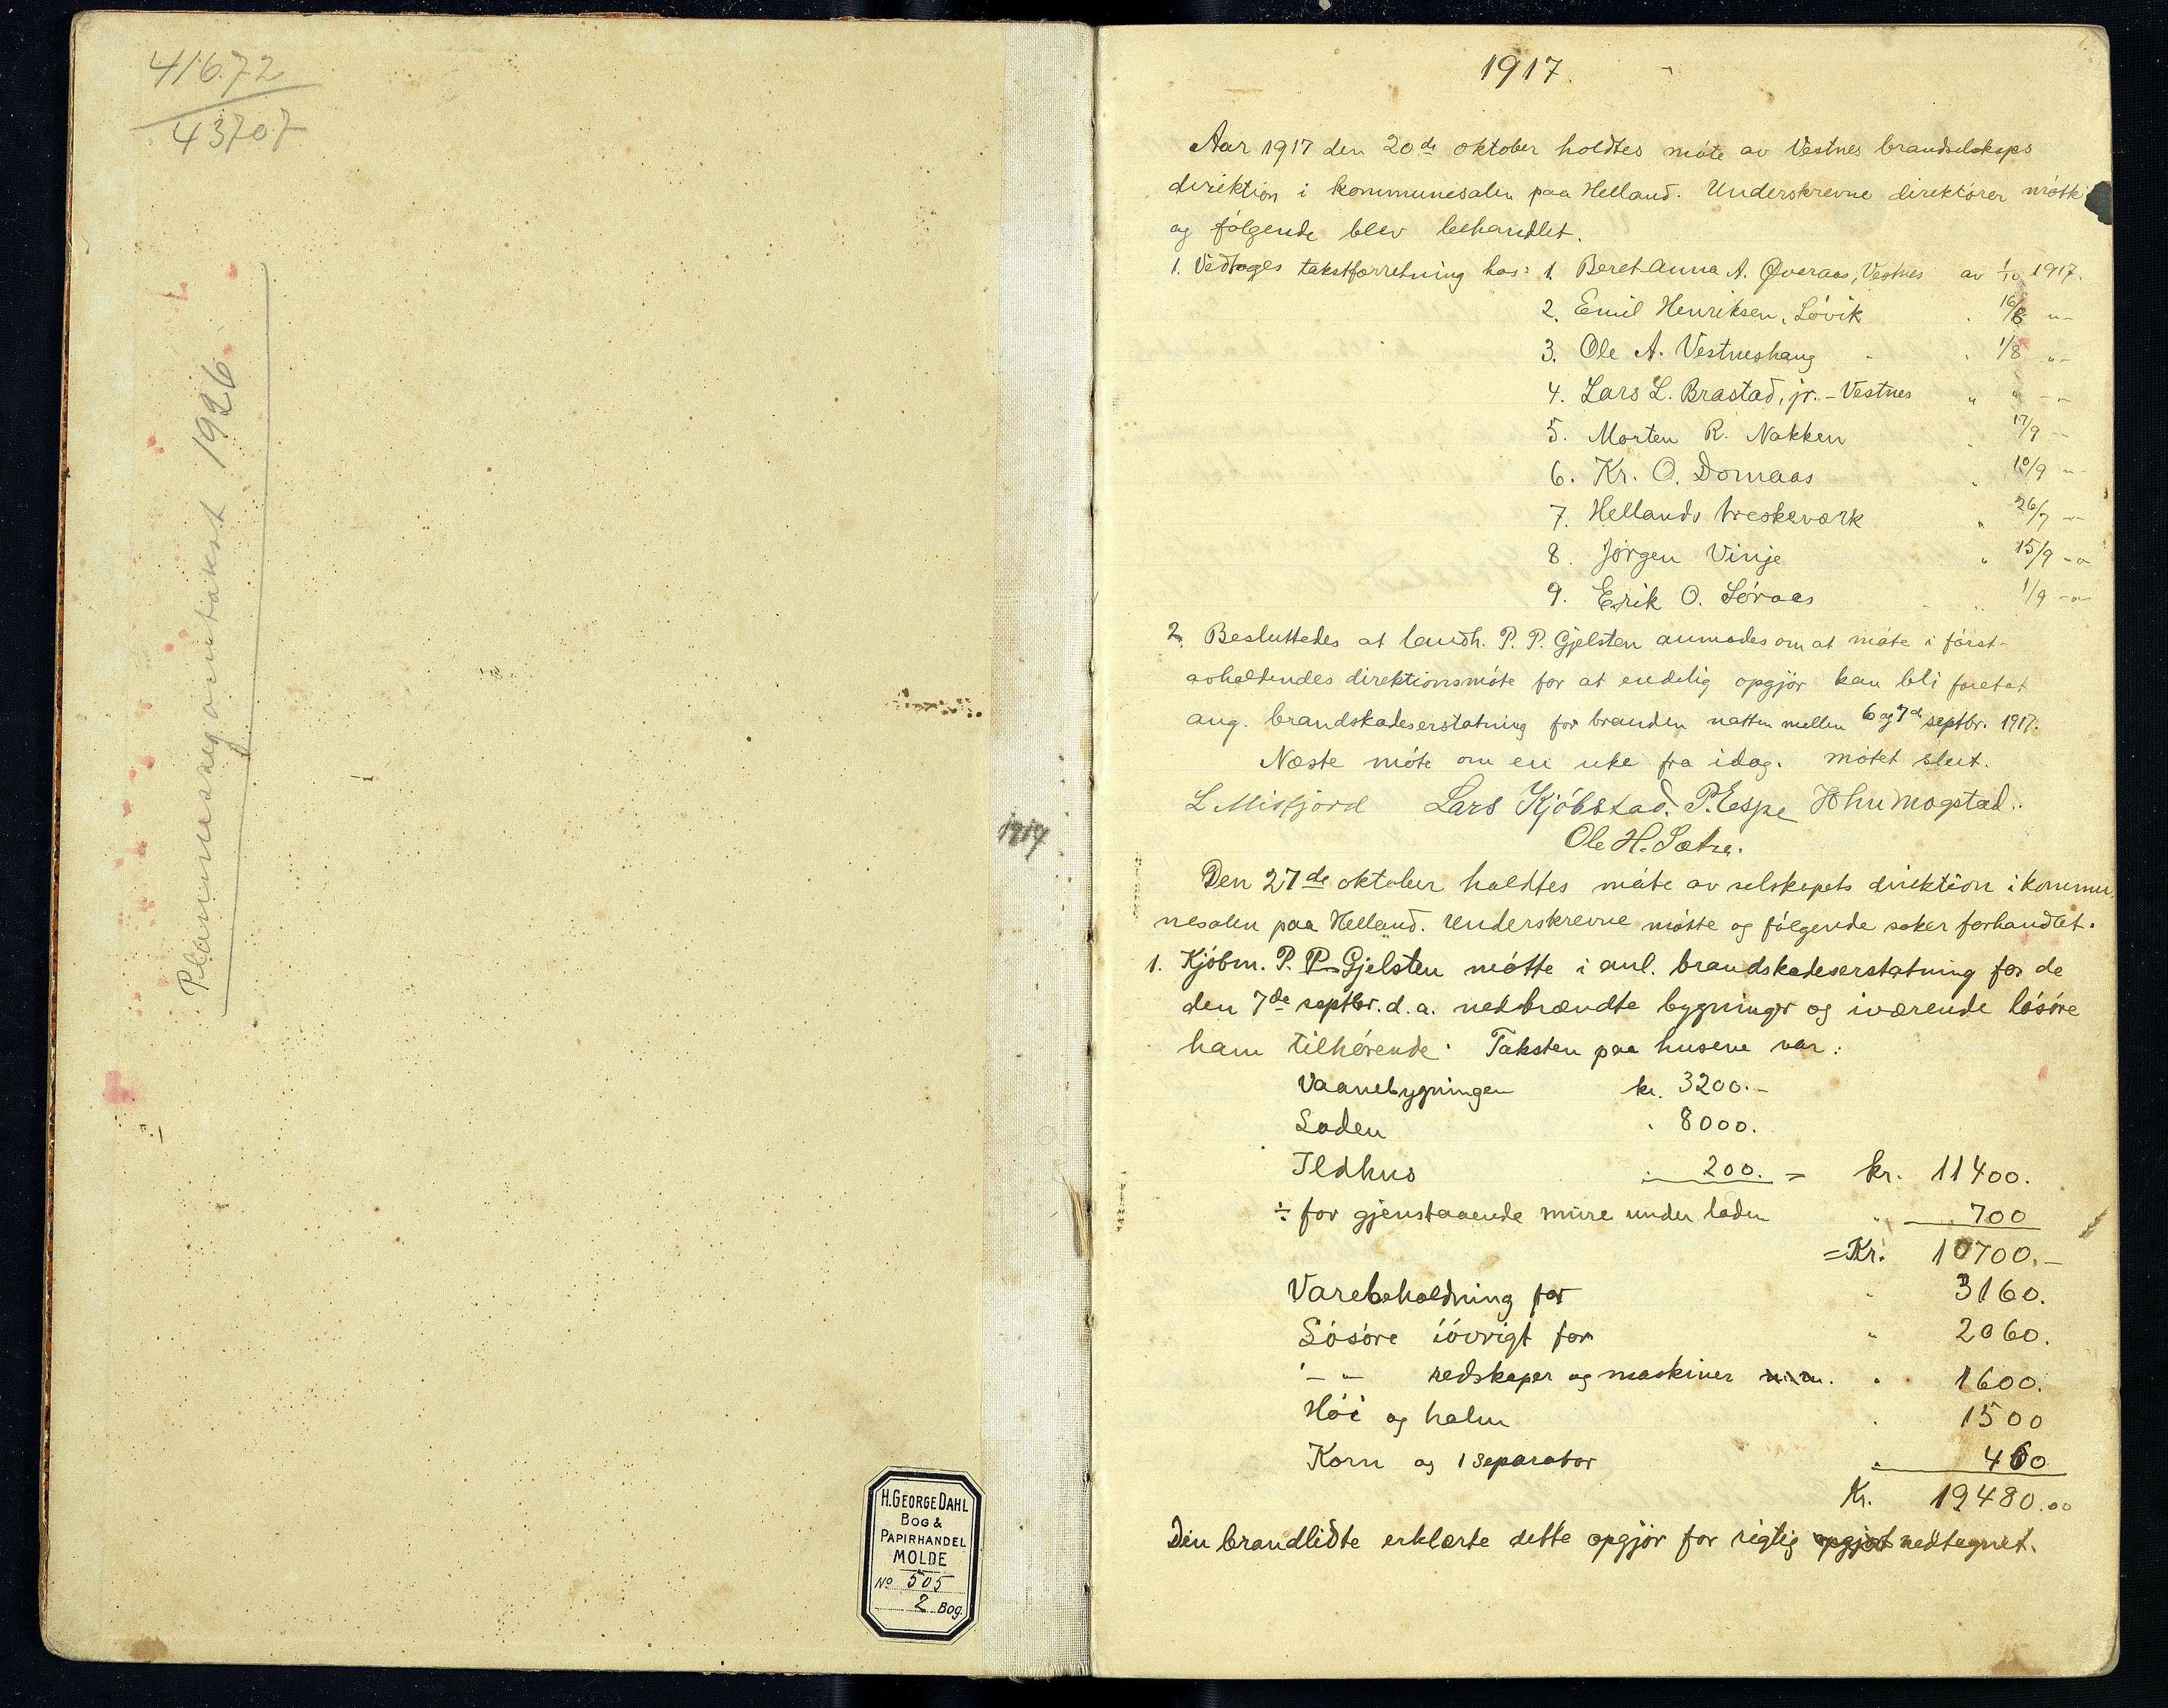 41672
43707
Planmessig omtakst 1926
1917
H. GEORGE DAHL
BOG &
PAPIRHANDEL
MOLDE
No 505
2 Bog.
1917.
Aar 1917 den 20de oktober holdtes møte av Vestnes brandselskaps
direktion i kommunesalen paa Helland. Underskrevne direktører møtte
og følgende blev behandlet.
1. Vedtoges takstforretning hos: 1. Beret Anna A. Øveraas, Vestnes av 1/10 1917.
2. Emil Henriksen, Løvik . 16/8 -"-
3. Ole A. Vestneshaug . 1/8 -"-
4. Lars L. Brastad, jr. - Vestnes " " -"-
5. Morten R. Nakken . 17/9 -"-
6. Kr. O. Domaas . 10/9 -"-
7. Hellands træskeværk " 26/7 -"-
8. Jørgen Vinje " 15/9 -"-
9. Erik O. Løvaas " 1/9 -"-
2. Besluttedes at landh. P. P. Gjelsten anmodes om at møte i først-
avholdendes direktionsmøte for at endelig opgjør kan bli foretat
ang. brandskadeserstatning for branden natten mellem 6 og 7de septbr. 1917.
Næste møte om en uke fra idag. møtet slut.
L Misfjord Lars Kjøbstad. P. Espe John Mogstad.
Ole H. Sætre.
Den 27de oktober holdtes møte av selskapets direktion i kommu-
nesalen paa Helland. Underskrevne møtte og følgende saker forhandlet.
1. Kjøbm. P. P. Gjelsten møtte i anl. brandskadeserstatning for de
den 7de septbr. d. a. nedbrændte bygninger og iværende løsøre
ham tilhørende. Taksten paa husene var:
Vaanebygningen kr. 3200.-
Laden . 8000.
Ildhus . 200. = kr. 11400.
÷ for gjenstaaende mure under laden " 700
= Kr. 10700.-
Varebeholdning for " 3160.
Løsøre iøvrigt for " 2060.
-"- redskaper og maskiner . " 1600.
Høi og halm . 1500
Korn og 1 separator . 460
Kr. 19480.00
Den brandlidte erklærte dette opgjør for rigtig opgjort nedtegnet.